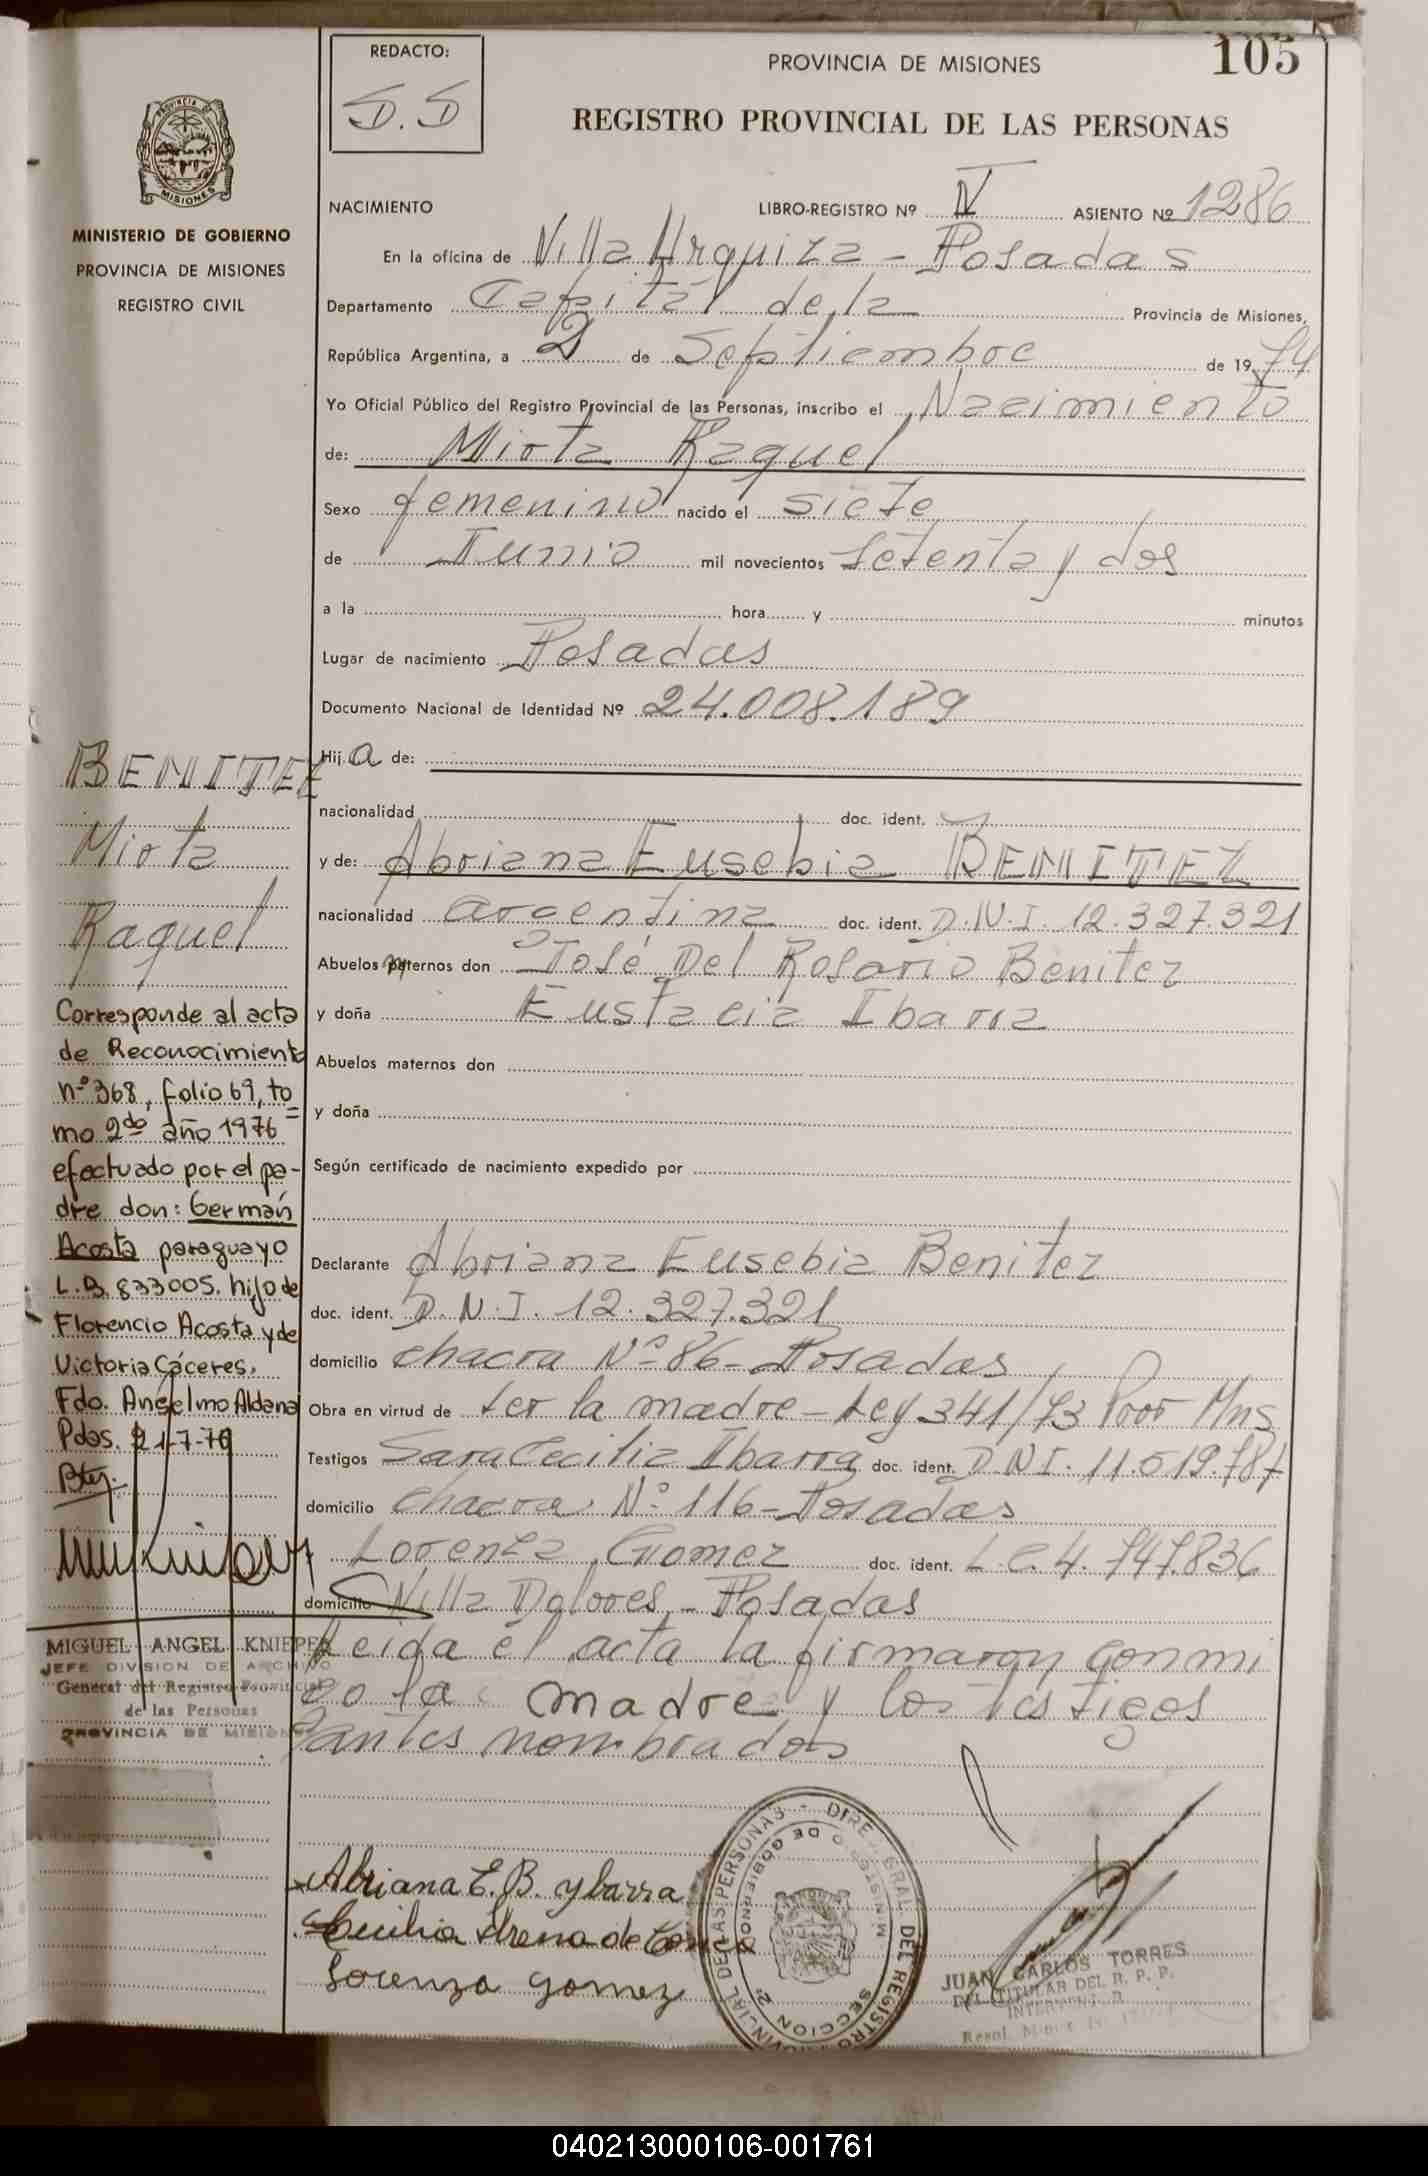 105
REDACTO:
S.D
PROVINCIA DE MISIONES
REGISTRO PROVINCIAL DE LAS PERSONAS
PROVINCIA DE
MISIONES
MINISTERIO DE GOBIERNO
PROVINCIA DE MISIONES
REGISTRO CIVIL
NACIMIENTO LIBRO-REGISTRO Nº IV ASIENTO Nº 1286
En la oficina de Villa Urquiza - Posadas
Departamento Capital de la Provincia de Misiones,
República Argentina, a 2 de Septiembre de 1974
Yo Oficial Público del Registro Provincial de las Personas, inscribo el Nacimiento
de: Mirta Raquel
Sexo femenino nacido el siete
de Junio mil novecientos setenta y dos
a la hora y minutos
Lugar de nacimiento Posadas
Documento Nacional de Identidad Nº 24.008.189
Hija de:
nacionalidad doc. ident.
y de: Abriana Eusebia BENITEZ
nacionalidad argentina doc. ident. D.N.I. 12.327.321
Abuelos maternos don José Del Rosario Benitez
y doña Eustacia Ibarra
Abuelos maternos don
y doña
Según certificado de nacimiento expedido por
Declarante Abriana Eusebia Benitez
duc. ident. D.N.I. 12.327.321
domicilio chacra Nº 86 - Posadas
Obra en virtud de ser la madre - Ley 341/73 Pror Mns
Testigos Sara Cecilia Ibarra doc. ident. D.N.I. 11.519.787
domicilio chacra Nº 116 - Posadas
Lorenza Gomez doc. ident. L.C. 4.747.836
domicilio Villa Dolores - Posadas
Leida el acta la firmaron conmi
go la madre y los testigos
antes nombrados
BENITEZ
Mirta
Raquel
Corresponde al acta
de Reconocimiento
nº 368, folio 69, to=
mo 2do año 1976
efectuado por el pa-
dre don: Germán
Acosta paraguayo
L.B. 833005. hijo de
Florencio Acosta y de
Victoria Cáceres.
Fdo. Angelmo Aldana
Pdas. 21-7-76
MIGUEL ANGEL KNIEPER
JEFE DIVISION DE ARCHIVO
General del Registro Provincial
de las Personas
PROVINCIA DE MISIONES
Abriana E. B. ybarra
Cecilia
Lorenza gomez
DIREC. GRAL. DEL REGISTRO PROVINCIAL DE LAS PERSONAS -
MINISTERIO DE GOBIERNO
2ª SECCION
JUAN CARLOS TORRES
DEL. TITULAR DEL R. P. P.